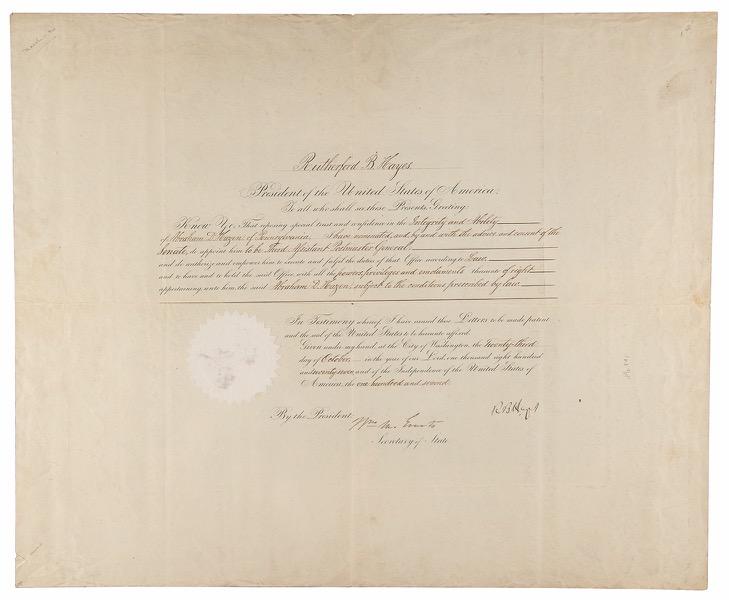 Rutherford B. Hayes.
President of the United States of America.
To all who shall see these Presents, Greeting:
Know Ye, That reposing special trust and confidence in the Integrity and Ability
of Abraham D. Hazen of Pennsylvania, I have nominated, and by and with the advice and consent of the
Senate, do appoint him to be Third Assistant Postmaster General
and do authorize and empower him to execute and fulfil the duties of that Office according to Law.
and to have and to hold the said Office with all the powers, privileges and emoluments thereunto of right
appertaining unto him, the said Abraham D. Hazen, subject to the conditions prescribed by law.
In Testimony whereof, I have caused these Letters to be made patent
and the seal of the United States to be hereunto affixed.
Given under my hand, at the City of Washington, the twenty-third
day of October in the year of our Lord, one thousand eight hundred
and and of the Independence of the United States of
America, the one hundred and second.
By the President: R B Hayes
Wm M. Evarts
Secretary of State